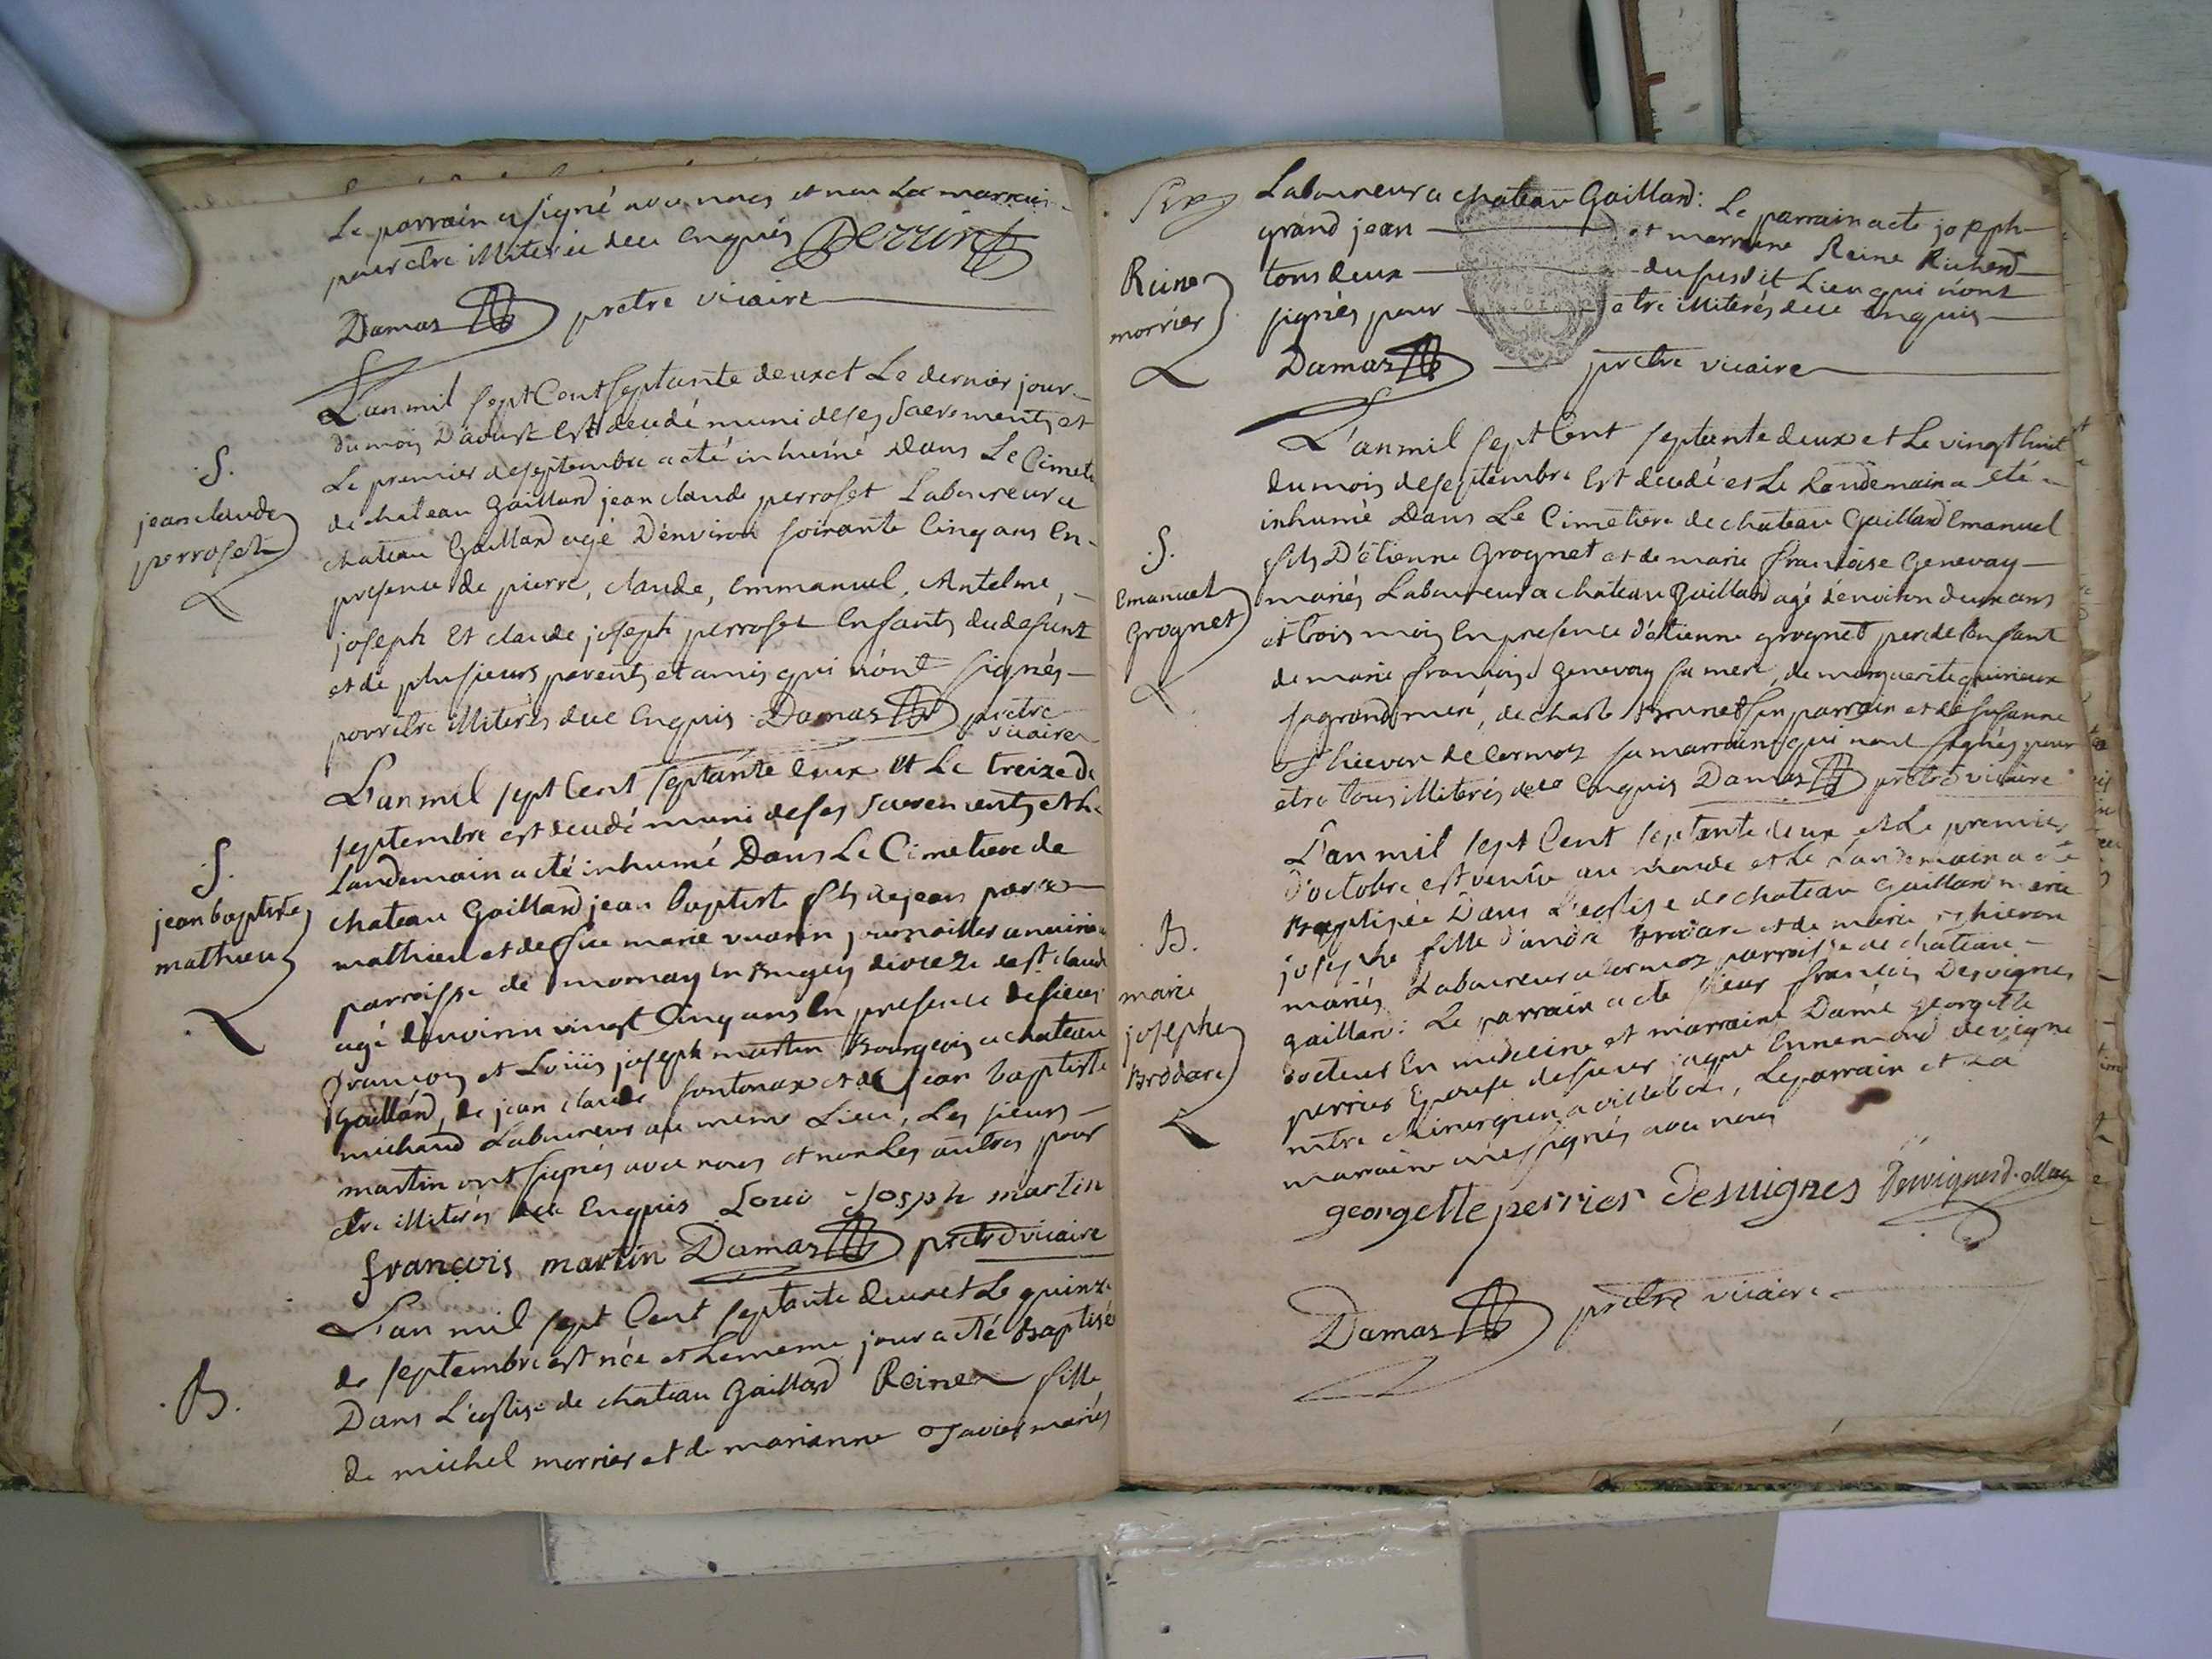 Le parrain a signé avec nous et non La marraine
pour etre illiterée dece enquis Perrin
Damas prêtre vicaire
L'an mil sept Cent septante deux et Le dernier jour
du mois D'aoust Est decedé muni de ses sacrements et
Le premier de septembre a eté inhumé Dans Le Cimet.
S.
jean claude
perroset
de chateau Gaillard jean claude perroset Laboureur a
chateau Gaillard agé D'environ soixante Cinq ans En
presence de pierre, claude, Emmanuel, Antelme,
joseph Et claude joseph perroset Enfants du defunt
et de plusieurs parents et amis qui n'ont signés
pour etre illiterés dece Enquis Damas prêtre
vicaire
L'an mil sept Cent septante deux Et Le treize de
septembre est decedé muni de ses sacrements et Le
S.
jean baptiste
mathieu
Landemain a eté inhumé Dans Le Cimetiere de
chateau Gaillard jean baptiste fils de jean
mathieu et de feue marie vuarin journaillier
parroisse de mornay En Bugey dioceze de st claude
agé d'environ vingt Cinq ans En presence de sieurs
François et Loüis joseph martin Bourgeois a chateau
Gaillard, de jean claude fontonax et de jean baptiste
michaud Laboureur au meme Lieu, Les sieurs
martin ont signés avec nous et non Les autres pour
etre illiterés dece Enquis Loui Josph martin
françois martin Damas prêtre vicaire
L'an mil sept Cent septante deux et Le quinze
B.
de septembre est née et Le meme jour a eté Baptisée
Dans L'eglise de chateau Gaillard Reine fille
de michel morrier et de marianne Javier mariés
Laboureur a chateau Gaillard: Le parrain a eté joseph
grand jean et marraine Reine Richard
Reine
morrier
tous deux du susdit Lieu qui n'ont
signés pour etre illiterés dece enquis
Damas prêtre vicaire
L'an mil sept Cent septante deux et Le vingt huit
du mois de septembre Est decedé et Le Landemain a eté
S.
Emanuel
Grognet
inhumé Dans Le Cimetiere de chateau Gaillard Emanuel
fils D'etienne Grognet et de marie françoise Genevay
mariés Laboureur a chateau Gaillard agé d'environ deux ans
et trois mois En presence d'etienne grognet pere de l'enfant
de marie françoise Genevay sa mere, de marguerite
sa grand mere, de charle Brunet son parrain et de susanne
de Cormoz sa marraine qui n'ont signés pour
etre tous illiterés dece Enquis Damas prêtre vicaire
L'an mil sept Cent septante deux et Le premier
d'octobre est venüe au monde et Le Landemain a eté
B.
marie
josephe
Brodare
Baptisée Dans L'eglise de chateau Gaillard marie
josephe fille d'andré Brodare et de marie
mariés Laboureur a Cormoz parroisse de chateau
gaillard: Le parrain a eté sieur françois Desvignes
docteur En medecine et marraine Dame georgette
perrier Epouse de sieur jaque Ennemond devigne
mtre chirurgien a villebois, Le parrain et La
marraine ont signés avec nous
georgette perrier desuignes
Damas prêtre vicaire